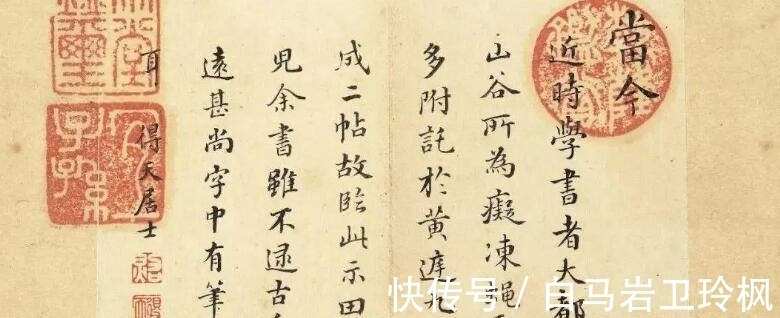 當今
近時學書者大都
山谷所為癡凍蠅
多附託於黃
成二帖故臨此示田
兒余書雖不逮古
遠甚尚字中有筆
耳
得天居士
宜子孫
快传号 / 白马岩卫玲枫